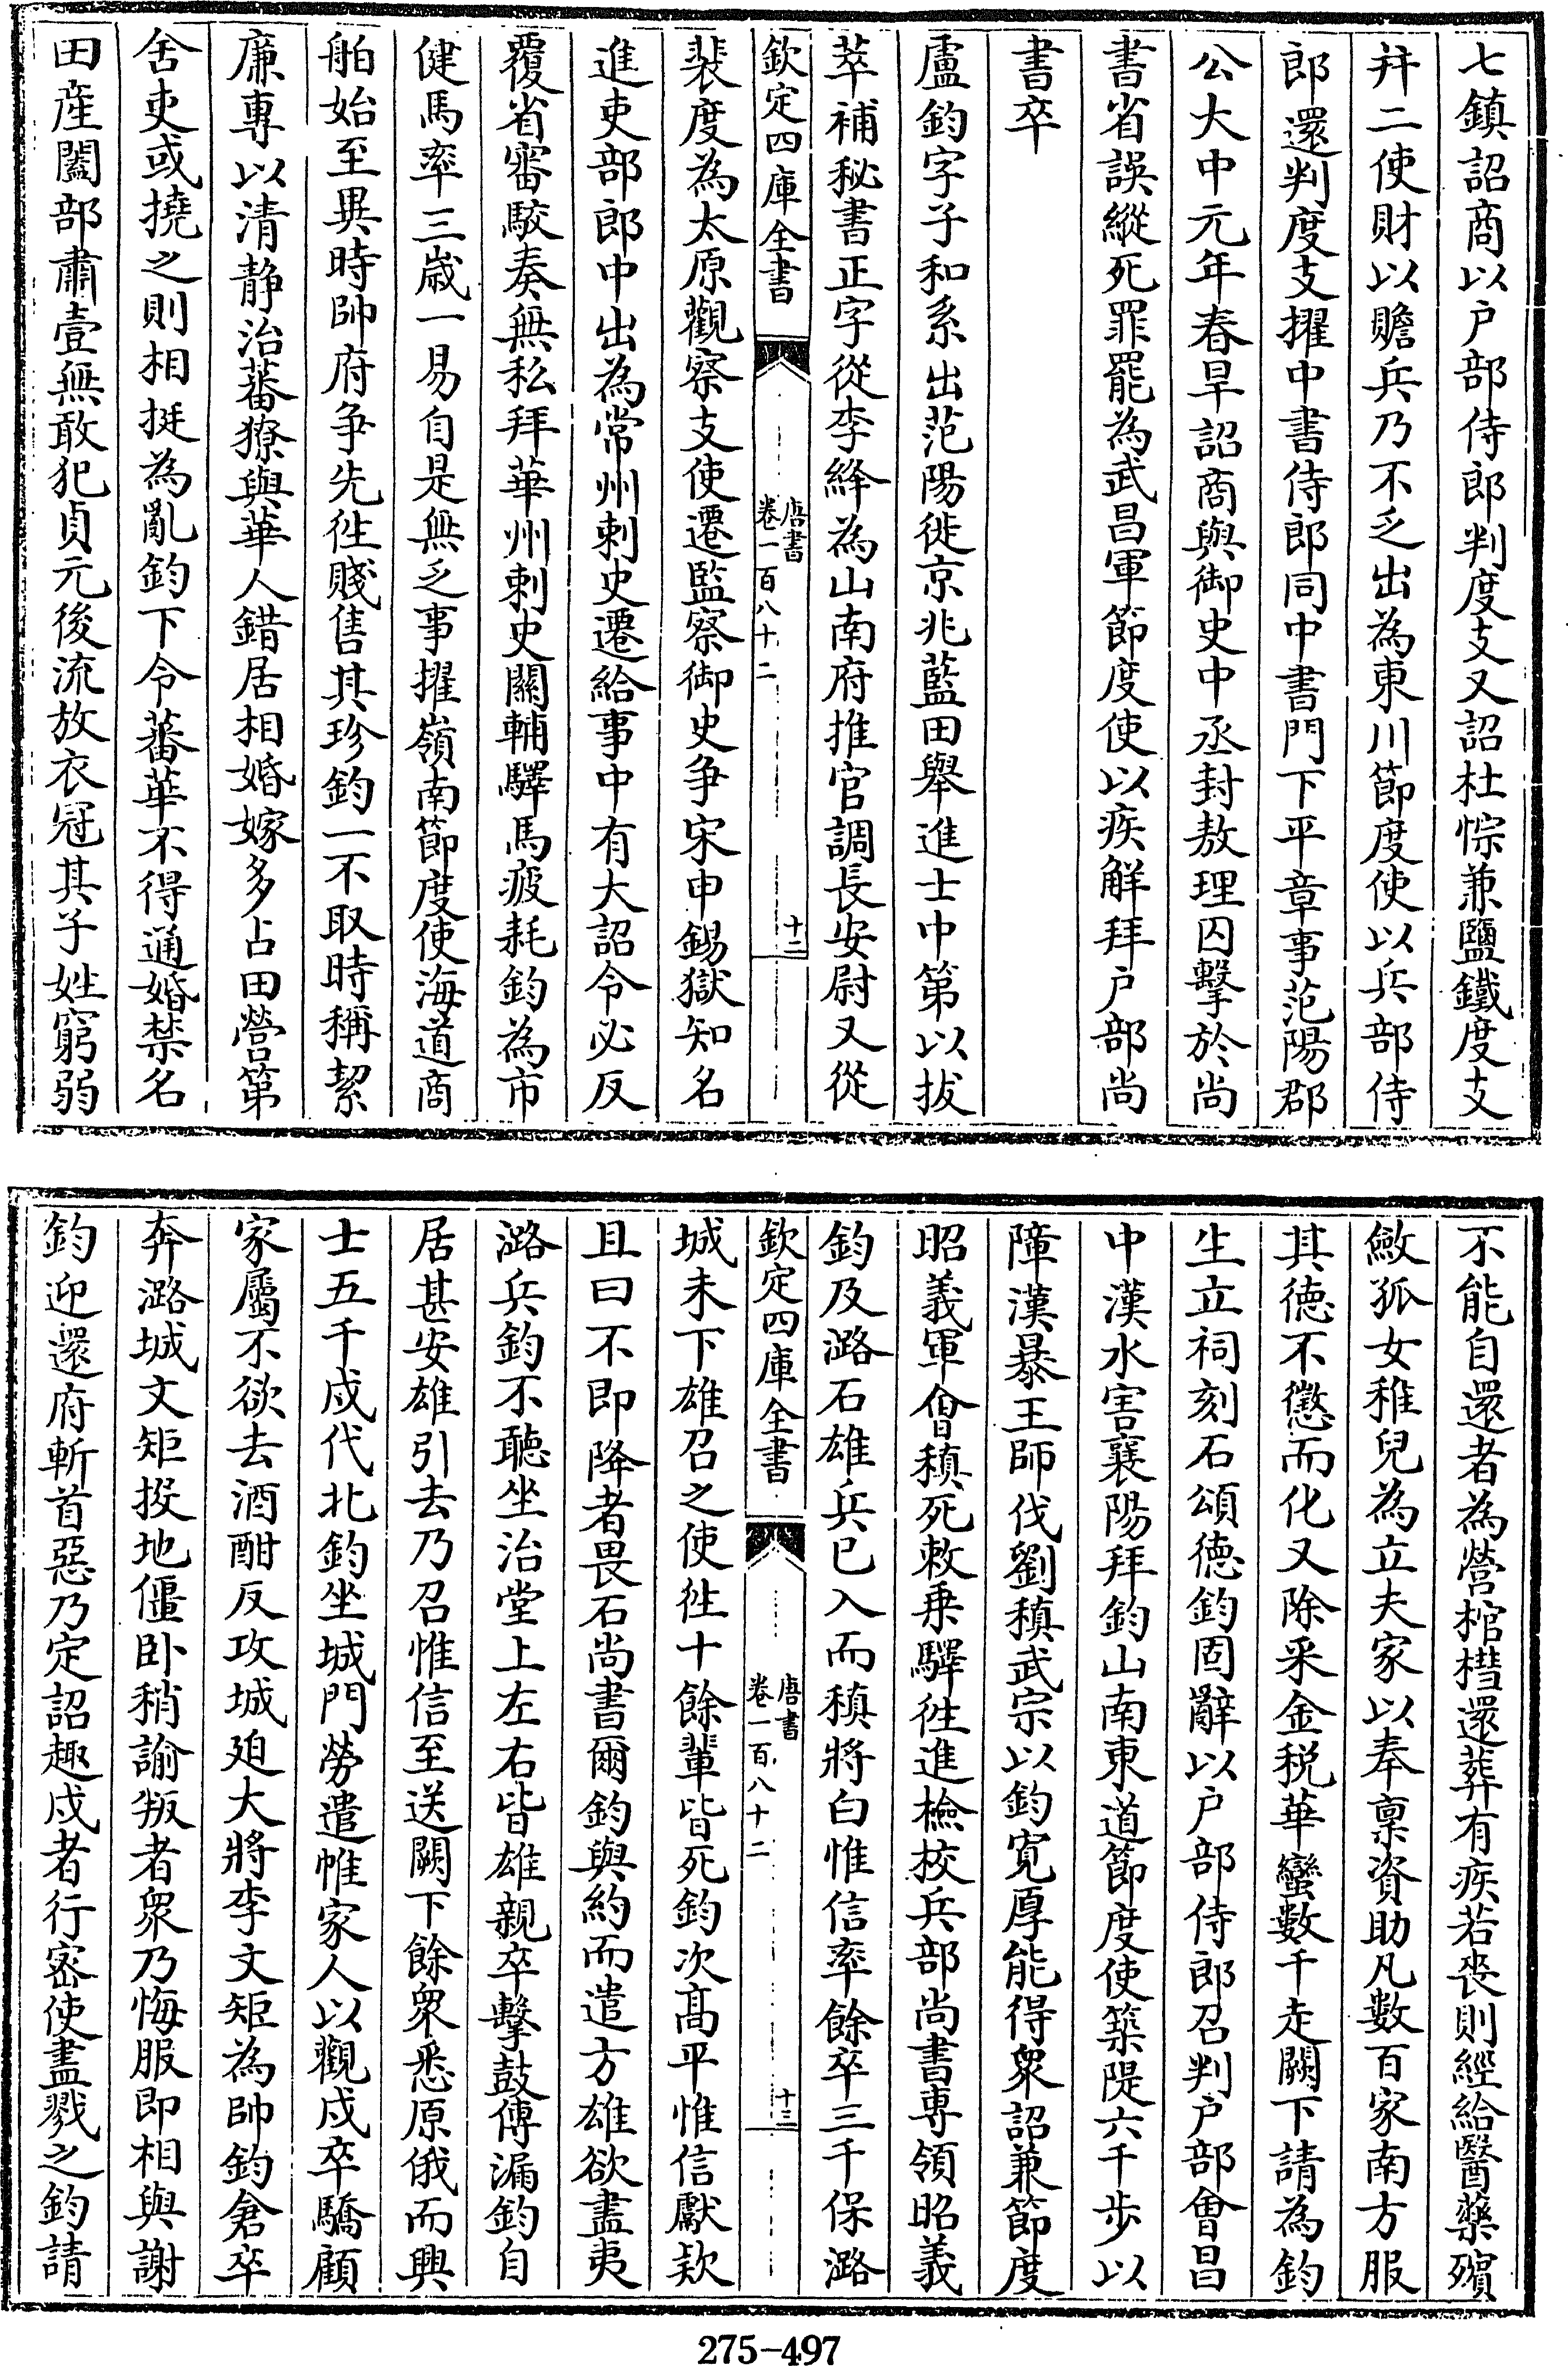 七鎮詔商以户部侍郎判度支又詔杜悰兼鹽鐵度支
幷二使財以贍兵乃不乏出為東川節度使以兵部侍
郎還判度支擢中書侍郎同中書門下平章事范陽郡
公大中元年春旱詔商與御史中丞封敖理囚擊於尚
書省誤縱死罪罷為武昌軍節度使以疾解拜户部尚
書卒
盧鈞字子和系出范陽徙京兆藍田舉進士中第以拔
萃補秘書正字從李絳為山南府推官調長安尉又從
欽定四庫全書
唐書
卷一百八十二
十二
裴度為太原觀察支使遷監察御史争宋申錫獄知名
進吏部郎中出為常州刺史遷給事中有大詔令必反
覆省審駮奏無私拜華州刺史關輔驛馬疲耗鈞為市
健馬率三歲一易自是無乏事擢嶺南節度使海道商
舶始至異時帥府争先徃賤售其珍鈞一不取時稱絜
廉專以清静治蕃獠與華人錯居相婚嫁多占田營第
舍吏或撓之則相挺為亂鈞下令蕃華不得通婚禁名
田産闔部肅壹無敢犯貞元後流放衣冠其子姓窮弱
不能自還者為營棺槥還葬有疾若喪則經給醫藥殯
斂孤女稚兒為立夫家以奉稟資助凡數百家南方服
其徳不懲而化又除采金税華蠻數千走闕下請為鈞
生立祠刻石頌徳鈞固辭以户部侍郎召判户部會昌
中漢水害襄陽拜鈞山南東道節度使築隄六千步以
障漢暴王師伐劉稹武宗以鈞寛厚能得衆詔兼節度
昭義軍㑹稹死敕乗驛徃進檢校兵部尚書專領昭義
鈞及潞石雄兵已入而稹將白惟信率餘卒三千保潞
欽定四庫全書
唐書
卷一百八十二
十三
城未下雄召之使徃十餘輩皆死鈞次髙平惟信獻欵
且曰不即降者畏石尚書爾鈞與約而遣方雄欲盡夷
潞兵鈞不聽坐治堂上左右皆雄親卒擊鼓傅漏鈞自
居甚安雄引去乃召惟信至送闕下餘衆悉原俄而興
士五千戍代北鈞坐城門勞遣帷家人以觀戍卒驕顧
家屬不欲去酒酣反攻城廹大將李文矩為帥鈞倉卒
奔潞城文矩投地僵卧稍諭叛者衆乃悔服即相與謝
鈞迎還府斬首惡乃定詔趣戍者行密使盡戮之鈞請
275-497